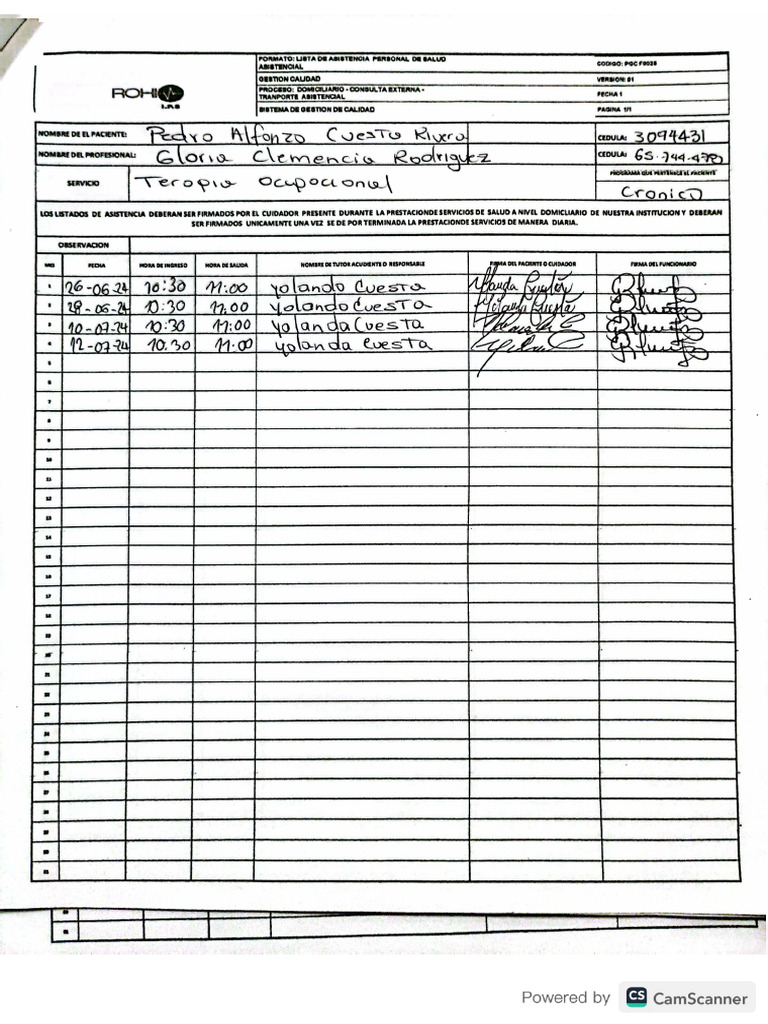 FORMATO: LISTA DE ASISTENCIA PERSONAL DE SALUD ASISTENCIAL
CODIGO: PGC F0028
GESTION CALIDAD
VERSION: 01
PROCESO: DOMICILIARIO - CONSULTA EXTERNA - TRANPORTE ASISTENCIAL
FECHA 1
SISTEMA DE GESTION DE CALIDAD
PAGINA 1/1
ROHI
I.P.S
NOMBRE DE EL PACIENTE: Pedro Alfonzo Cuesta Rivera CEDULA: 3094431
NOMBRE DEL PROFESIONAL: Gloria Clemencia Rodriguez CEDULA: 65.744.4
SERVICIO Terapia Ocupacional
PROGRAMA QUE PERTENECE EL PACIENTE
Cronico
LOS LISTADOS DE ASISTENCIA DEBERAN SER FIRMADOS POR EL CUIDADOR PRESENTE DURANTE LA PRESTACIONDE SERVICIOS DE SALUD A NIVEL DOMICILIARIO DE NUESTRA INSTITUCION Y DEBERAN
SER FIRMADOS UNICAMENTE UNA VEZ SE DE POR TERMINADA LA PRESTACIONDE SERVICIOS DE MANERA DIARIA.
OBSERVACION
NRO FECHA HORA DE INGRESO HORA DE SALIDA NOMBRE DE TUTOR ACUDIENTE O RESPONSABLE FIRMA DEL PACIENTE O CUIDADOR FIRMA DEL FUNCIONARIO
1 26-06-24 10:30 11:00 Yolanda Cuesta
2 28-06-24 10:30 11:00 Yolanda Cuesta
3 10-07-24 10:30 11:00 Yolanda Cuesta
4 12-07-24 10.30 11:00 Yolanda Cuesta
5
6
7
8
9
10
11
12
13
14
15
16
17
18
19
20
21
22
23
24
25
26
27
28
29
30
31
Powered by CS CamScanner